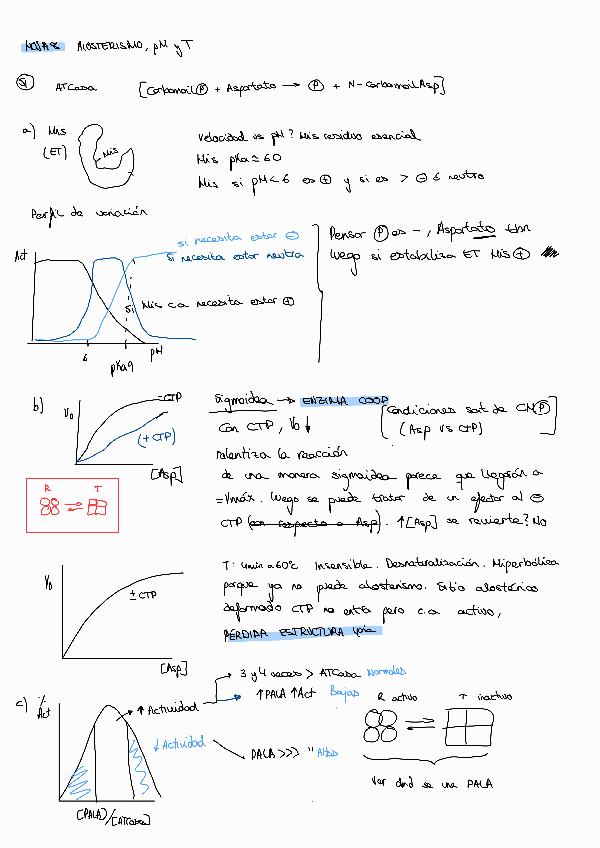 HOJA 8 ALOSTERISMO, pH y T
5) ATCasa [Carbamoil(P) + Aspartato → (P) + N-CarbamoilAsp]
a) His
(ET)
His
Velocidad vs pH? His residuo esencial
His pKa ≈ 6.0
His si pH < 6 es ⊕ y si es > ⊖ ó neutro
Perfil de variación
Act
si necesita estar ⊖
si necesita estar neutra
si His c.a necesita estar ⊕
6
pKa 9
pH
Pensar (P) es -, Aspartato tbn
luego si estabiliza ET His ⊕
b) V₀
-CTP
(+ CTP)
[Asp]
R T
Sigmoidea → ENZIMA COOP
Con CTP, V₀ ↓
(Condiciones sat de CM(P)
(Asp vs CTP)
ralentiza la reacción
de una manera sigmoidea parece que llegarán a
=Vmáx. Luego se puede tratar de un efector al ⊖
CTP (con respecto a Asp). ↑[Asp] se revierte? No
V₀
± CTP
[Asp]
T: 4min a 60ºC Insensible. Desnaturalización. Hiperbólica
porque ya no puede alosterismo. Sitio alostérico
deformado CTP no entra pero c.a activo,
PÉRDIDA ESTRUCTURA 4ria
c) % Act
↑ Actividad
↓ Actividad
[PALA]/[ATCasa]
3 y 4 veces > ATCasa Normales
↑PALA ↑Act Bajas
PALA >>> " Altas
R activo T inactivo
Ver dnd se une PALA